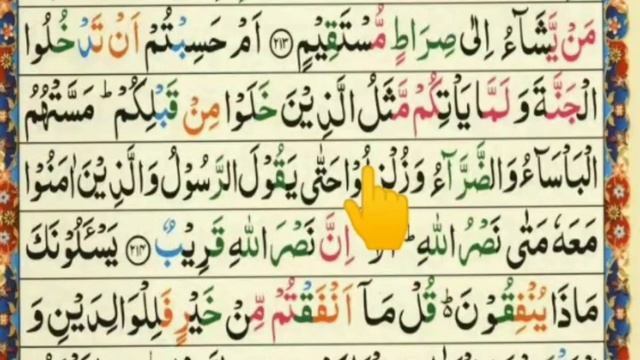 مَنْ يَّشَآءُ اِلٰى صِرَاطٍ مُّسْتَقِيْمٍ ﴿۲۱۳﴾ اَمْ حَسِبْتُمْ اَنْ تَدْخُلُوا
الْجَنَّةَ وَ لَمَّا يَاْتِكُمْ مَّثَلُ الَّذِيْنَ خَلَوْا مِنْ قَبْلِكُمْ ؕ مَسَّتْهُمُ
الْبَاْسَآءُ وَ الضَّرَّآءُ وَ زُلْزِلُوْا حَتّٰى يَقُوْلَ الرَّسُوْلُ وَ الَّذِيْنَ اٰمَنُوْا
مَعَهٗ مَتٰى نَصْرُ اللّٰهِ ؕ اِنَّ نَصْرَ اللّٰهِ قَرِيْبٌ ﴿۲۱۴﴾ يَسْـَٔلُوْنَكَ
مَاذَا يُنْفِقُوْنَ ؕ قُلْ مَاۤ اَنْفَقْتُمْ مِّنْ خَيْرٍ فَلِلْوَالِدَيْنِ وَ